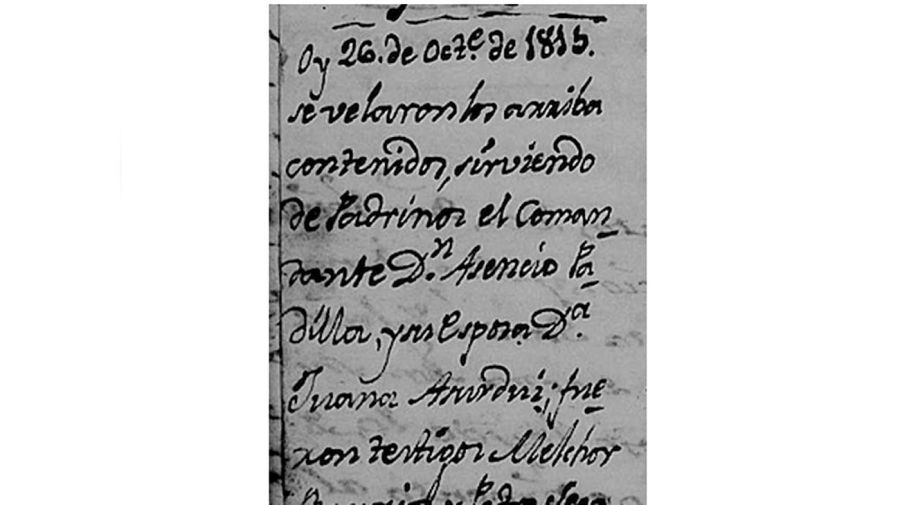 Oy 26. de Octe. de 1815.
se velaron los arriba
contenidos, sirviendo
de Padrinos el Coman
dante Dn. Asencio Pa
dilla, y su Esposa Da.
Juana Asurdui; fue
ron testigos Melchor